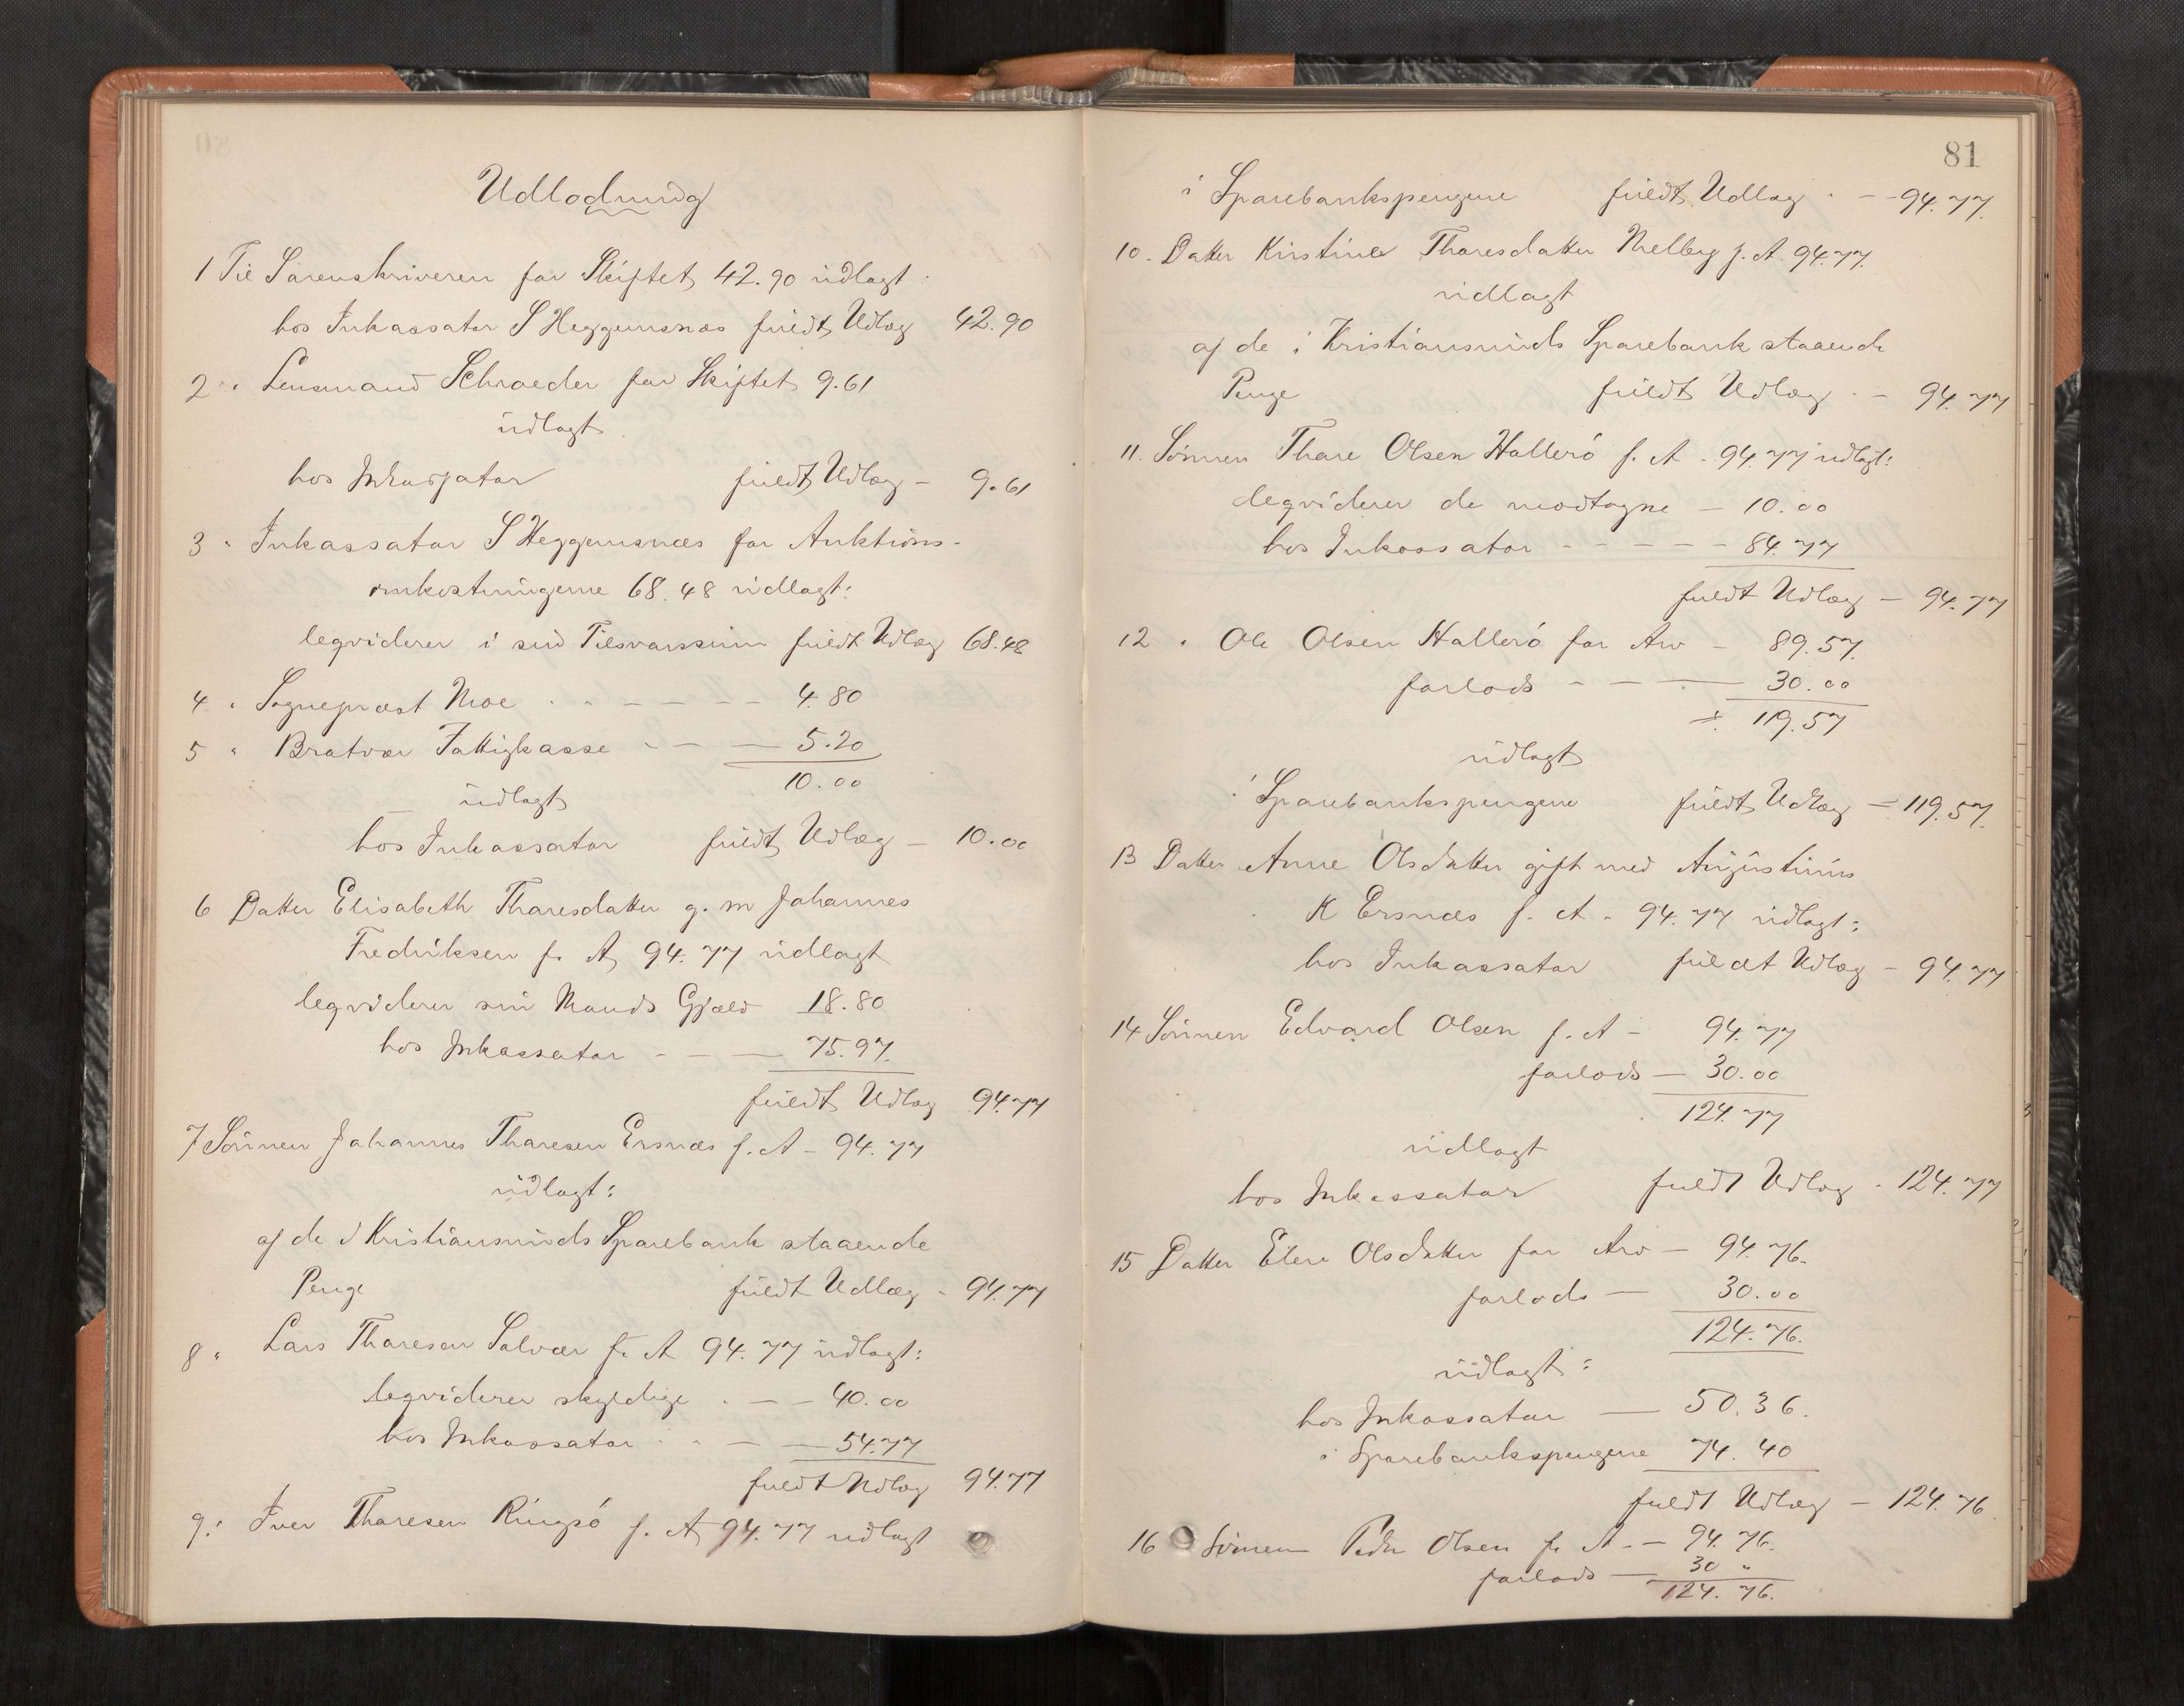 Udlodning
1 Til Sorenskriveren for Skiftet 42.90 udlagt
hos Inkassator S Heggemsnæs fuldt Udlæg 42.90
2 " Lensmand Schroeder for Skiftet 9.61
udlagt
hos Inkassator fuldt Udlæg - 9.61
3 " Inkassator S Heggemsnæs for Auktions-
omkostningerne 68.48 udlagt:
leqviderer i sin Tilsvarssum fuldt Udlæg 68.48
4 " Sogneprest Moe - - - - - 4.80
5 " Bratvær Fattigkasse - - - 5.20
10.00
udlagt
hos Inkassator fuldt Udlæg - 10.00
6 Datter Elisabeth Tharesdatter g. m Johannes
Fredriksen f. A 94.77 udlagt
leqviderer sin Mands Gjæld 18.80
hos Inkassator - - - 75.97
fuldt Udlæg 94.77
7 Sönnen Johannes Tharesen Ersnæs f. A - 94.77
udlagt:
af de i Kristiansunds Sparebank staaende
Penge fuldt Udlæg - 94.77
8 " Lars Tharesen Solvær f. A 94.77 udlagt:
leqviderer skyldige - - - 40.00
hos Inkassator - - - 54.77
fuldt Udlæg 94.77
9 " Iver Tharesen Ringsö f. A 94.77 udlagt
81
i Sparebankspengene fuldt Udlæg - - 94.77
10. Datter Kirstine Tharesdatter Melberg f. A 94.77
udlagt
af de i Kristiansunds Sparebank staaende
Penge fuldt Udlæg - - 94.77
11. Sönnen Thare Olsen Hallerö f. A - 94.77 udlagt:
leqviderer de modtagne - 10.00
hos Inkassator - - - - - 84.77
fuldt Udlæg - 94.77
12 " Ole Olsen Hallerö for Arv - 89.57
forlods - - - 30.00
119.57
udlagt
i Sparebankspengene fuldt Udlæg - 119.57
13 Datter Anne Olsdatter gift med Augustinus
K Ersnæs f. A - 94.77 udlagt:
hos Inkassator fuldt Udlæg - 94.77
14 Sönnen Edvard Olsen f. A - 94.77
forlods - 30.00
124.77
udlagt
hos Inkassator fuldt Udlæg - 124.77
15 Datter Elen Olsdatter for Arv - 94.76
forlods - 30.00
124.76
udlagt:
hos Inkassator - 50.36
i Sparebankspengene 74.40
fuldt Udlæg - 124.76
16 Sönnen Peder Olsen f. A - - 94.76
forlods - 30 "
124.76